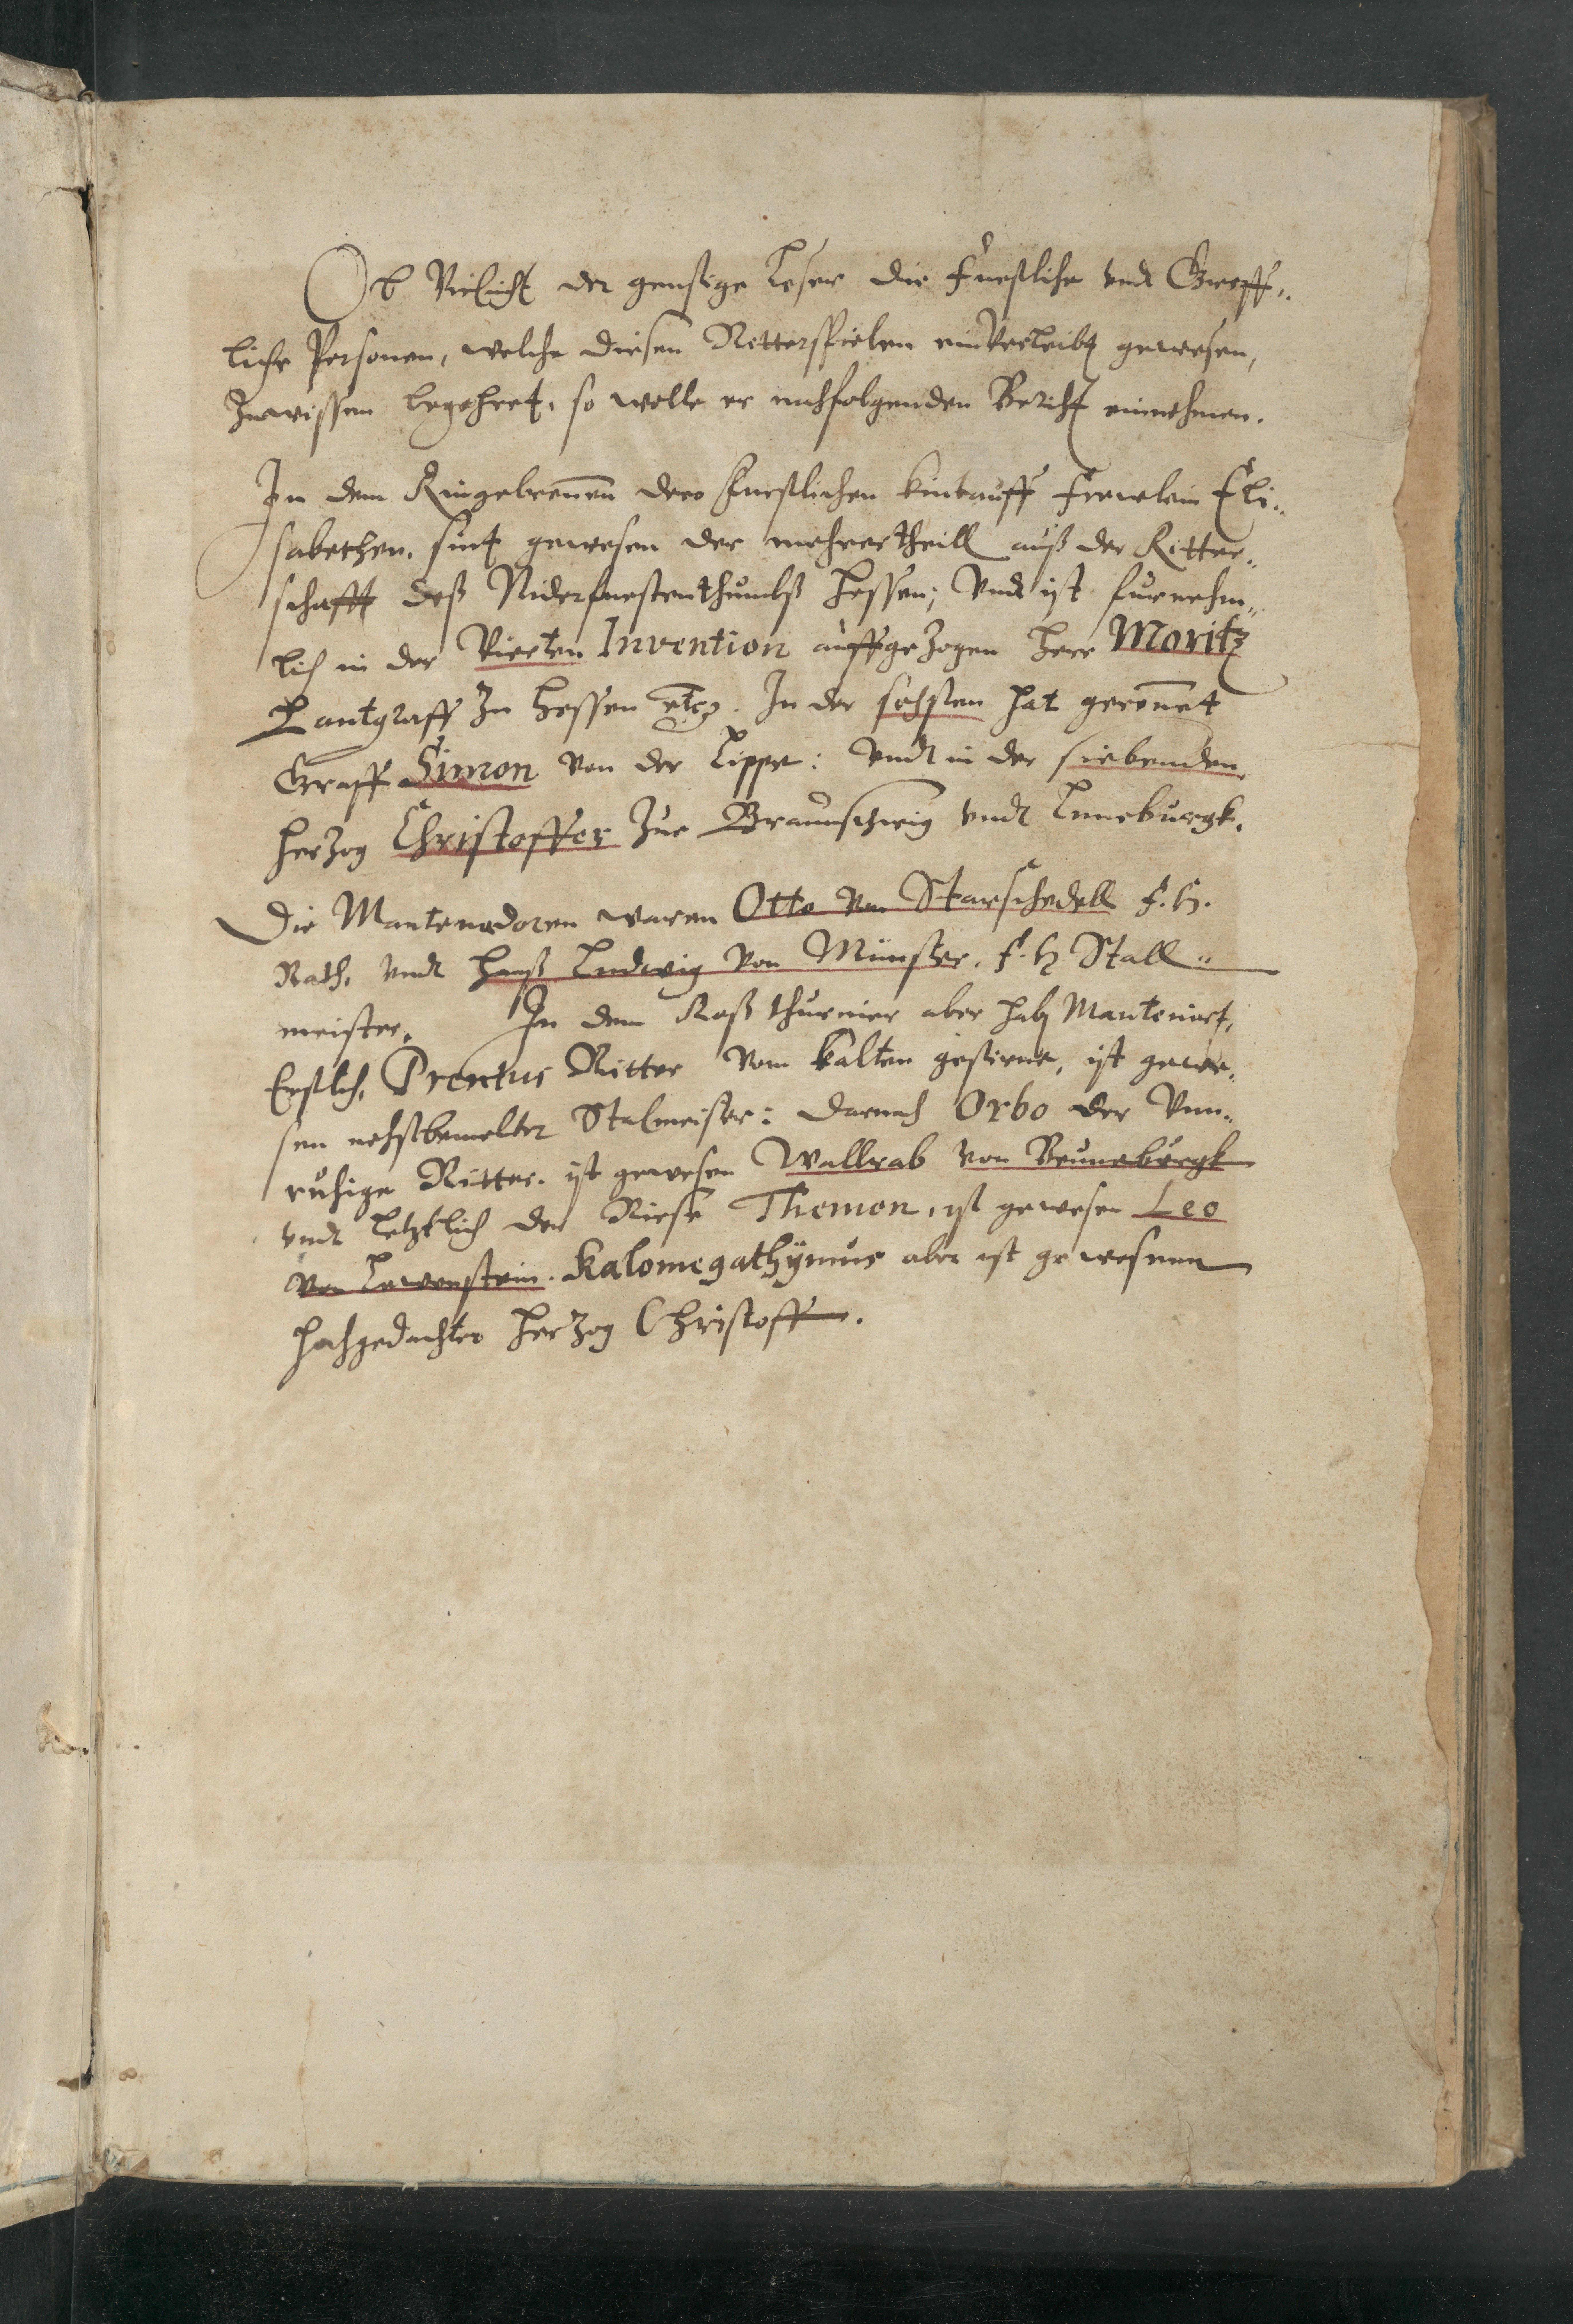 Ob Vielicht der genstige Leser die Furstliche vndt Greff„
liche Personen, welche diesen Ritterspielen einverleibt gewesen,
zuwissen begehret, so wolle er nachfolgenden Bericht einnehmen.
In dem Ringelrennen dero Furstlichen kintauff Frewlein Eli„
sabethen, sint gewesen der mehrertheill auß der Ritter„
schafft deß Niderfurstenthumbß Hessen; Vndt ist furnehm„
lich in der Vierten Invention auffgezogen Herr Moritz
Lantgraff zu Hessen etc. In der sechsten hat gerennet
Graff Simon von der Lippe: vndt in der siebenden
Herzog Christoffer zur Braunschweig vndt Luneburgk.
Die Mantenadoren waren Otto von Starschedell F. H.
Rath, vndt Hanß Ludwig von Münster, F. H Stall„
meister. In dem Roß thurnier aber hab Manteniert,
Erstlich, Prentus Ritter vom kalten gestirne, ist gewe„
sen nehstbemelter Stalmeister: darnach Orbo der Vnn„
ruhige Ritter, ist gewesen Wallrab von Beuneburgk
vndt letztlich der Riese Themon, ist gewesen Leo
von Lewenstein. Kalomegathÿmus aber ist gewesenn
hochgedachter Herzog Christoff.